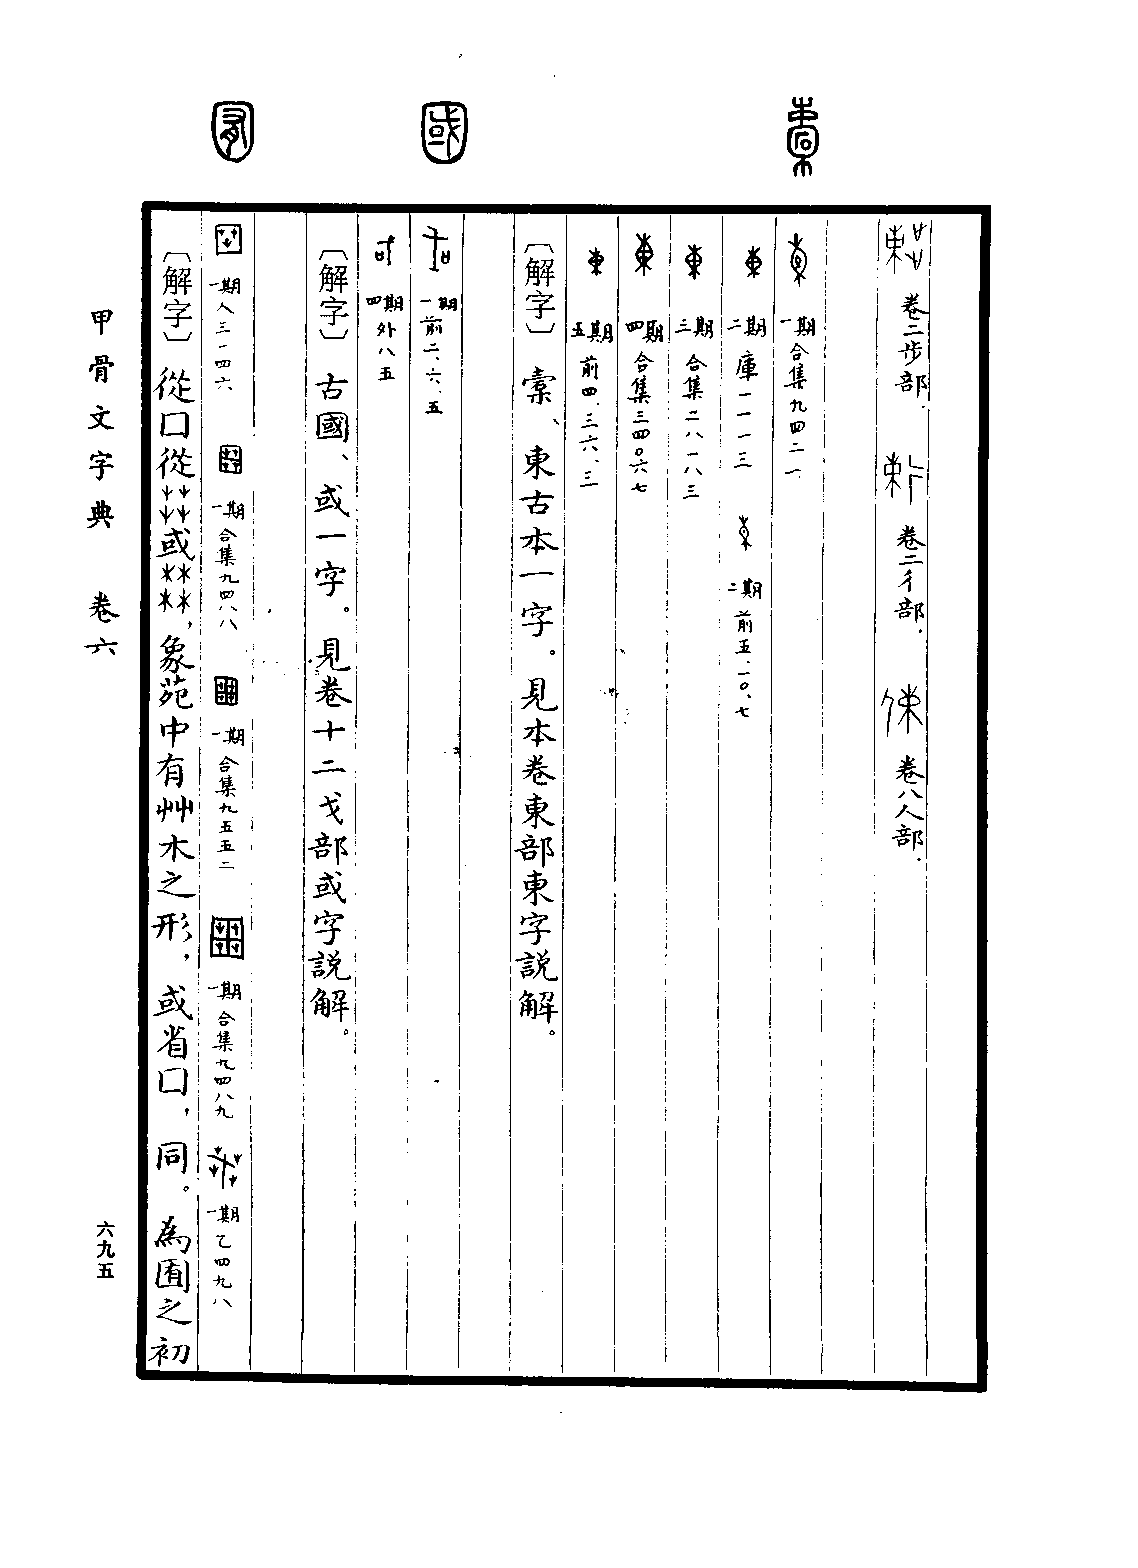 卷二步部. 卷二彳部. 卷八人部.
一期 合集九四二一
二期 庫一一一三 二期 前五.一〇.七
三期 合集二八一八三
四期 合集三四〇六七
五期 前四.三六.三
〔解字〕 橐、東古本一字。見本卷東部東字説解。
一期 前二.六.五
四期 外八五
〔解字〕 古國、或一字。見卷十二戈部或字説解。
一期 人三一四六 一期 合集九四八八 一期 合集九五五二 一期 合集九四八九 一期 乙四九八
〔解字〕 從囗從或,象苑中有艸木之形,或省囗,同。為囿之初
甲骨文字典 卷六
六九五